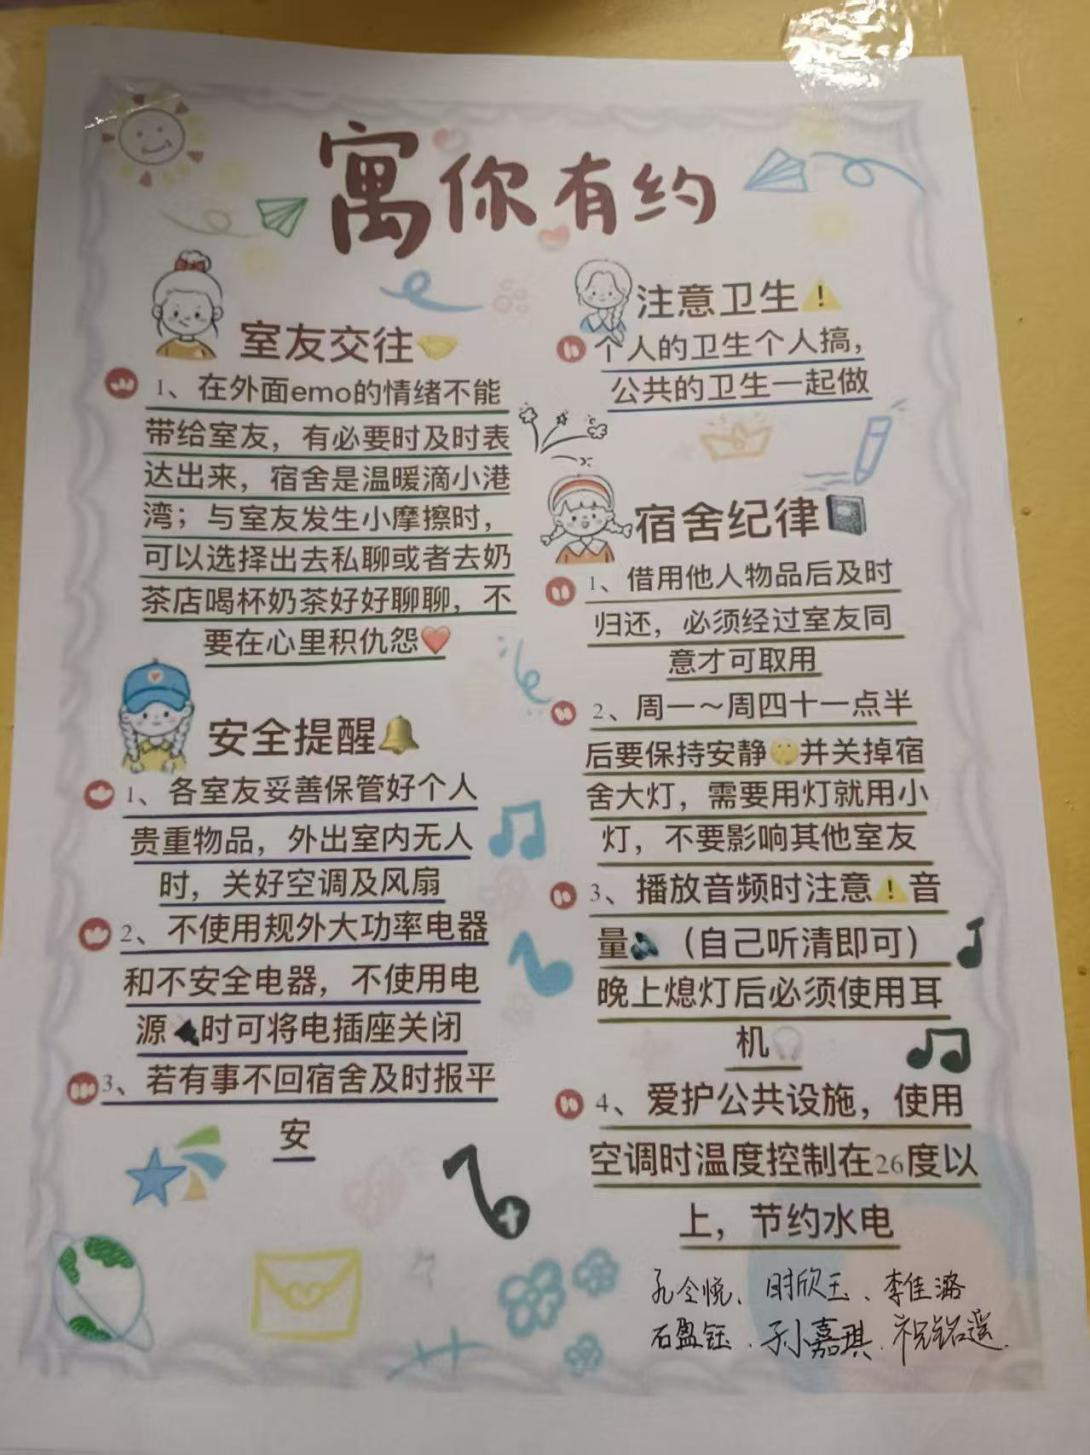 寓你有约
室友交往
1、在外面emo的情绪不能
带给室友，有必要时及时表
达出来，宿舍是温暖滴小港
湾；与室友发生小摩擦时，
可以选择出去私聊或者去奶
茶店喝杯奶茶好好聊聊，不
要在心里积仇怨❤️
安全提醒🔔
1、各室友妥善保管好个人
贵重物品，外出室内无人
时，关好空调及风扇
2、不使用规外大功率电器
和不安全电器，不使用电
源🔌时可将电插座关闭
3、若有事不回宿舍及时报平
安
注意卫生⚠️
个人的卫生个人搞，
公共的卫生一起做
宿舍纪律
1、借用他人物品后及时
归还，必须经过室友同
意才可取用
2、周一～周四十一点半
后要保持安静🤫并关掉宿
舍大灯，需要用灯就用小
灯，不要影响其他室友
3、播放音频时注意⚠️音
量🔊（自己听清即可）
晚上熄灯后必须使用耳
机🎧
4、爱护公共设施，使用
空调时温度控制在26度以
上，节约水电
孔令悦、时欣玉、李佳潞
石盈钰．孙嘉琪．祝铭遥．